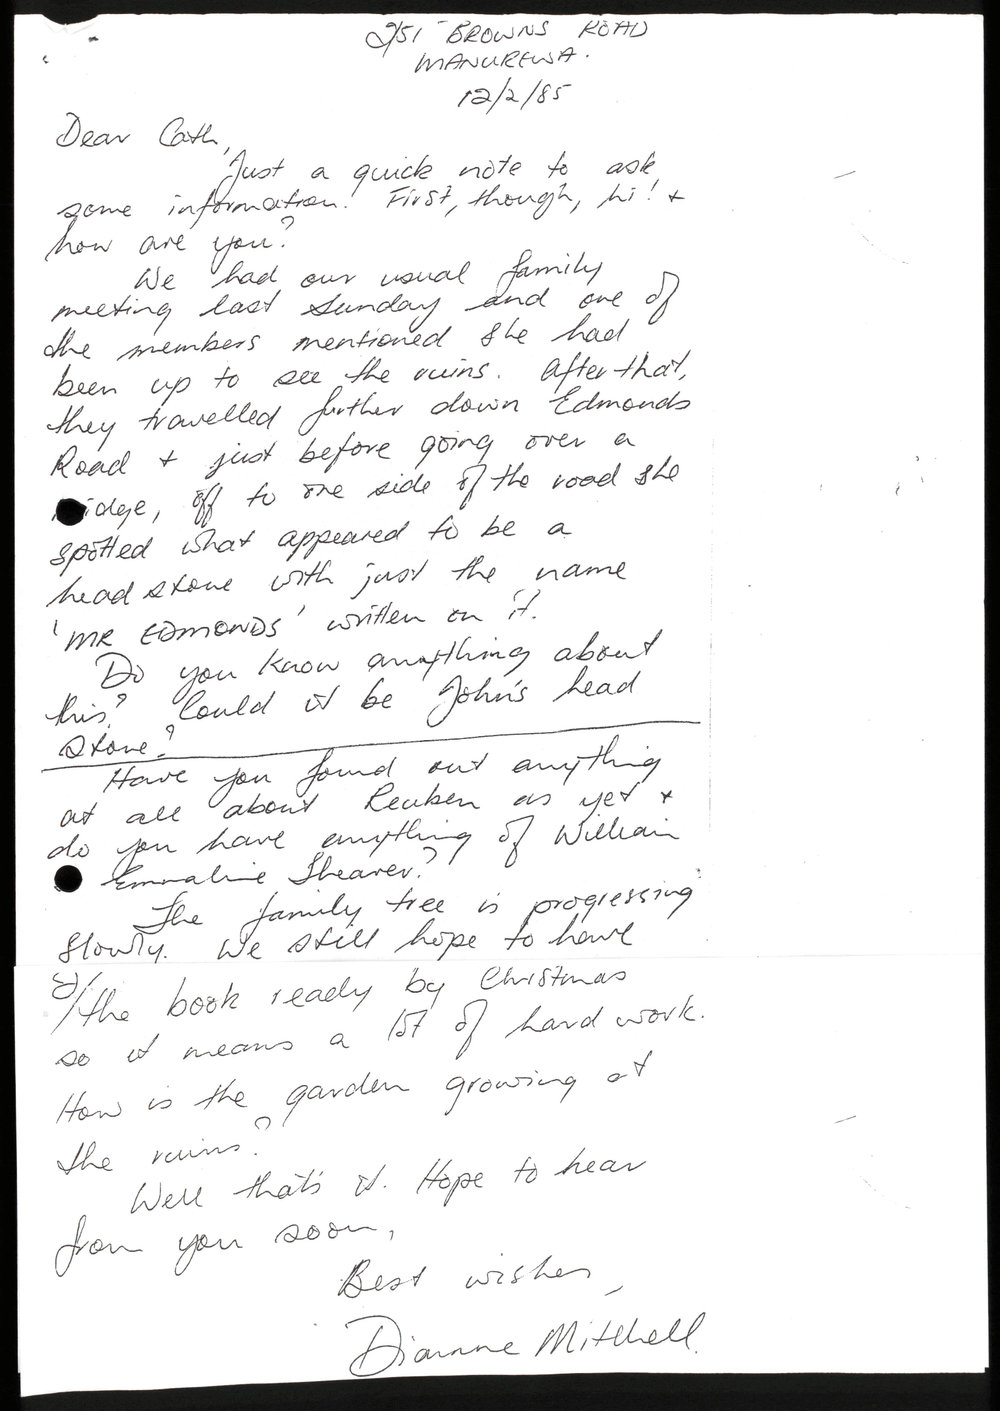 2/51 BROWNS ROAD
MANUREWA.
12/2/85
Dear Cath,
Just a quick note to ask
some information. First, though, hi! +
how are you?
We had our usual family
meeting last Sunday and one of
the members mentioned she had
been up to see the ruins. After that,
they travelled further down Edmonds
Road + just before going over a
idge, off to one side of the road she
spotted what appeared to be a
head stone with just the name
'MR EDMONDS' written on it.
Do you know anything about
this? Could it be John's head
stone?
Have you found out anything
at all about Reuben as yet +
do you have anything of William
Emmaline Shearer?
The family tree is progressing
slowly. We still hope to have
2/ the book ready by Christmas
so it means a lot of hard work.
How is the garden growing at
the ruins?
Well that's it. Hope to hear
from you soon,
Best wishes,
Dianne Mitchell.